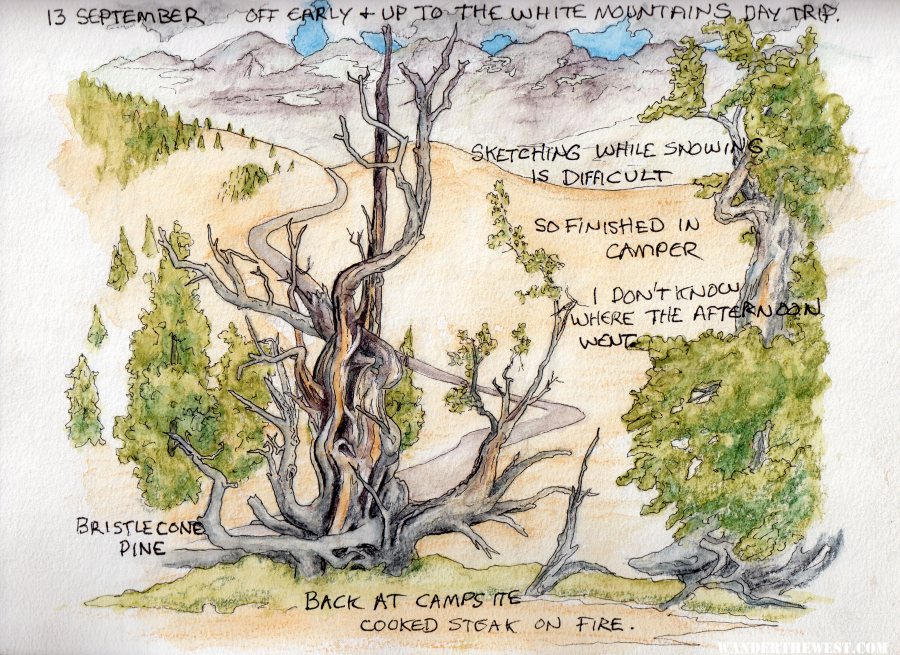 13 SEPTEMBER OFF EARLY + UP TO THE WHITE MOUNTAINS DAY TRIP.
SKETCHING WHILE SNOWING
IS DIFFICULT
SO FINISHED IN
CAMPER
I DON'T KNOW
WHERE THE AFTERNOON
WENT.
BRISTLECONE
PINE
BACK AT CAMPSITE
COOKED STEAK ON FIRE.
WANDERTHEWEST.COM